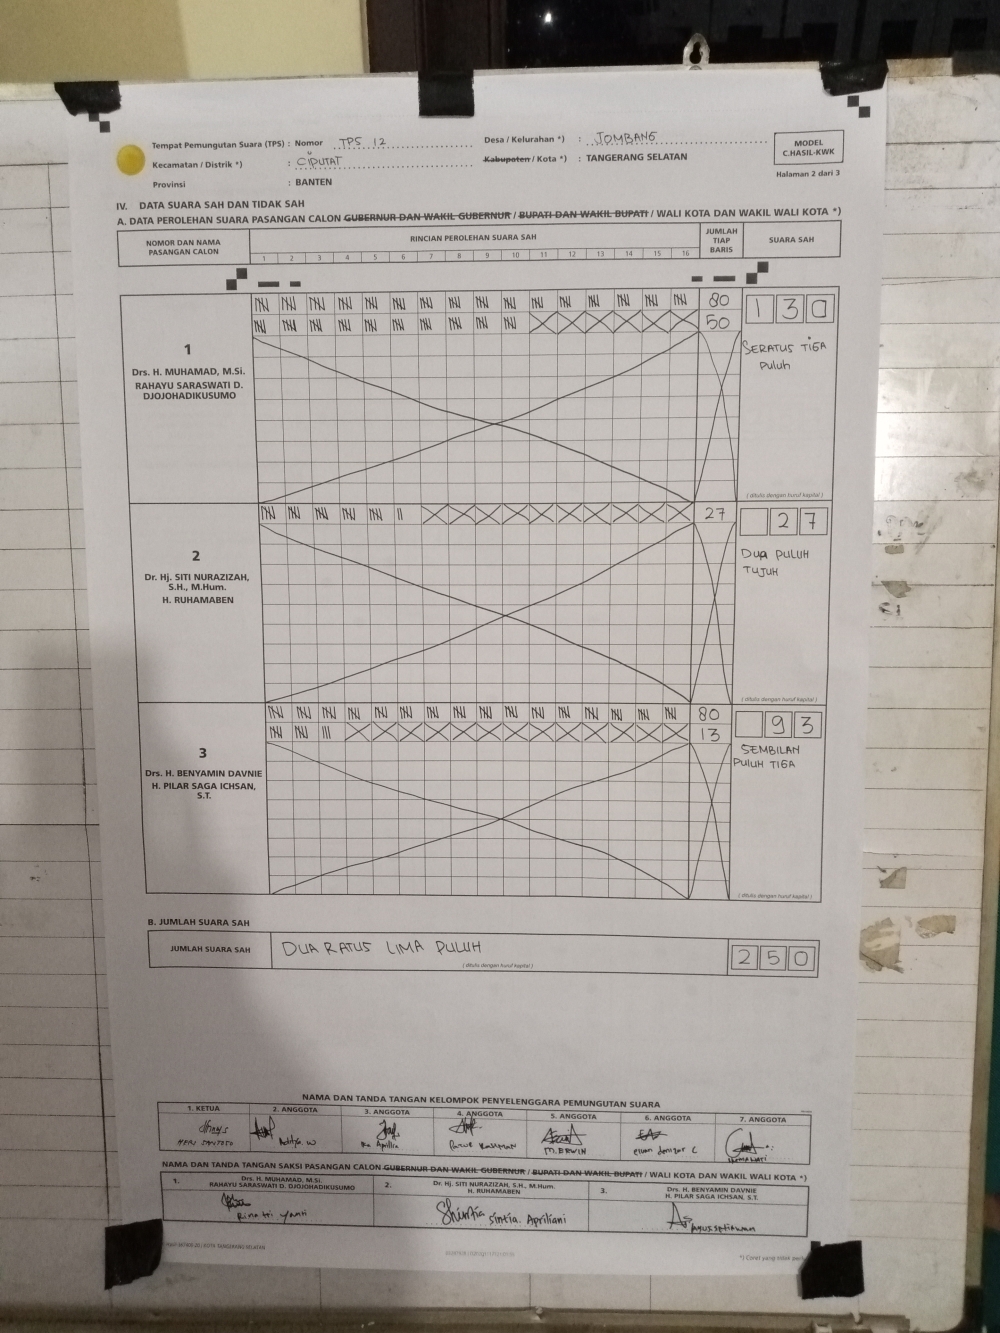 Tempat Pemungutan Suara (TPS) : Nomor TPS 12 Desa / Kelurahan *) : JOMBANG
Kecamatan / Distrik *) : CIPUTAT Kabupaten / Kota *) : TANGERANG SELATAN
Provinsi : BANTEN
MODEL
C.HASIL-KWK
Halaman 2 dari 3
IV. DATA SUARA SAH DAN TIDAK SAH
A. DATA PEROLEHAN SUARA PASANGAN CALON GUBERNUR DAN WAKIL GUBERNUR / BUPATI DAN WAKIL BUPATI / WALI KOTA DAN WAKIL WALI KOTA *)
NOMOR DAN NAMA
PASANGAN CALON
RINCIAN PEROLEHAN SUARA SAH
1 2 3 4 5 6 7 8 9 10 11 12 13 14 15 16
JUMLAH
TIAP
BARIS
SUARA SAH
1
Drs. H. MUHAMAD, M.Si.
RAHAYU SARASWATI D.
DJOJOHADIKUSUMO
80
50
130
SERATUS TIGA
Puluh
( ditulis dengan huruf kapital )
2
Dr. Hj. SITI NURAZIZAH,
S.H., M.Hum.
H. RUHAMABEN
27
27
DUA PULUH
TUJUH
( ditulis dengan huruf kapital )
3
Drs. H. BENYAMIN DAVNIE
H. PILAR SAGA ICHSAN,
S.T.
80
13
93
SEMBILAN
PULUH TIGA
( ditulis dengan huruf kapital )
B. JUMLAH SUARA SAH
JUMLAH SUARA SAH
DUA RATUS LIMA PULUH
( ditulis dengan huruf kapital )
250
NAMA DAN TANDA TANGAN KELOMPOK PENYELENGGARA PEMUNGUTAN SUARA
1. KETUA 2. ANGGOTA 3. ANGGOTA 4. ANGGOTA 5. ANGGOTA 6. ANGGOTA 7. ANGGOTA
HERI SANTOSO Aditya W Aprilia M. ERWIN
NAMA DAN TANDA TANGAN SAKSI PASANGAN CALON GUBERNUR DAN WAKIL GUBERNUR / BUPATI DAN WAKIL BUPATI / WALI KOTA DAN WAKIL WALI KOTA *)
1. Drs. H. MUHAMAD, M.Si.
RAHAYU SARASWATI D. DJOJOHADIKUSUMO
2. Dr. Hj. SITI NURAZIZAH, S.H., M.Hum.
H. RUHAMABEN
3. Drs. H. BENYAMIN DAVNIE
H. PILAR SAGA ICHSAN, S.T.
Yanti
Shintia Sintia. Apriliani
Agus Setiawan
*) Coret yang tidak